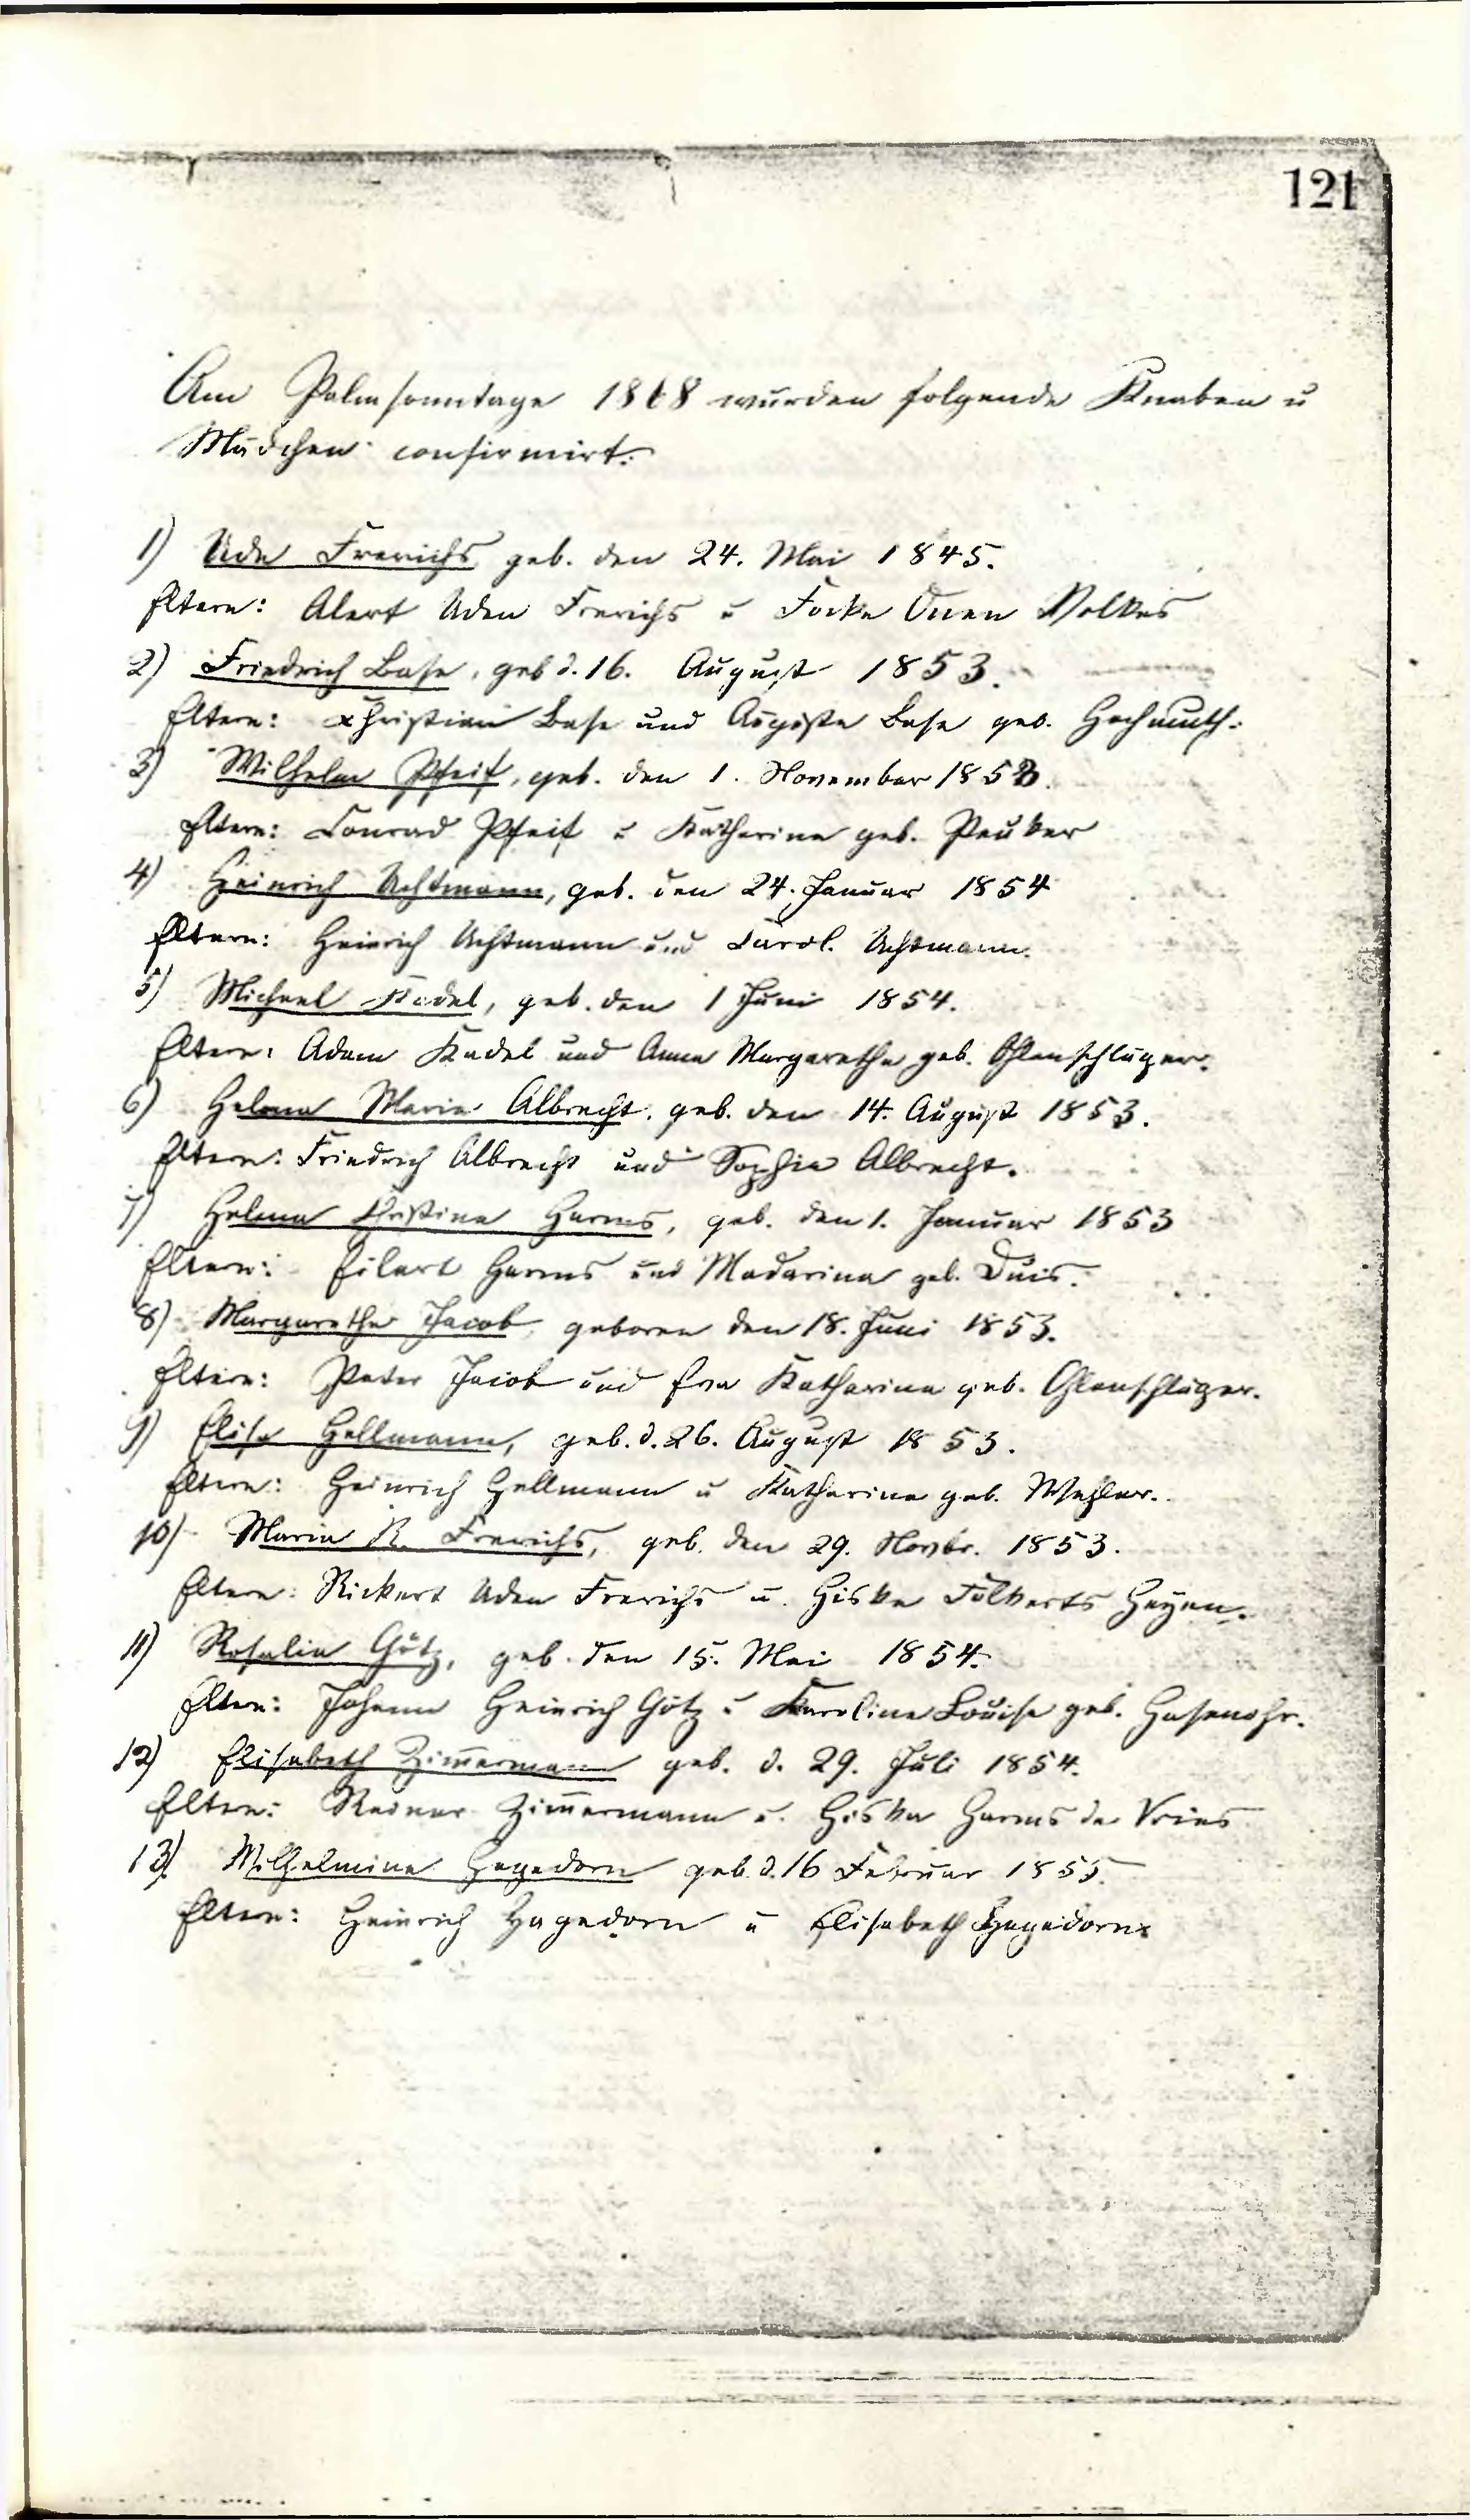 121
Am Palmsonntage 1868 wurden folgende Knaben u
Mädchen confirmirt:
1) Ude Frerichs geb. den 24. Mai 1845.
Eltern: Alert Uden Frerichs u Focke Onen Volkes
2) Friedrich Base, geb d. 16. August 1853.
Eltern: Christian Base und Auguste Base geb. Hochmuth.
3) Wilhelm Pfeif, geb. den 1. November 1853.
Eltern: Conrad Pfeif u Katharine geb. Peuker
4) Heinrich Uchtmann, geb. den 24. Januar 1854
Eltern: Heinrich Uchtmann und Carol. Uchtmann.
5) Michael Kadel, geb. den 1 Juni 1854.
Eltern: Adam Kadel und Anna Margarethe geb. Ohlenschläger.
6) Helena Maria Albrecht, geb. den 14. August 1853.
Eltern: Friedrich Albrecht und Sophia Albrecht.
7) Helena Christina Harms, geb. den 1. Januar 1853
Eltern: Eilert Harms und Madarina geb. Duis.
8) Margarethe Jacob, geboren den 18. Juni 1853.
Eltern: Peter Jacob und Eva Katharina geb. Ohlenschläger.
9) Elise Hellmann, geb. d. 26. August 1853.
Eltern: Heinrich Hellmann u Katharine geb. Wehler.
10) Maria R. Frerichs, geb. den 29. Novbr. 1853.
Eltern: Rickert Uden Frerichs u. Giske Folkerts Heyen.
11) Rosalie Götz, geb. den 15. Mai 1854.
Eltern: Johann Heinrich Götz u Karoline Louise geb. Hasenohr.
12) Elisabeth Zimmermann geb. d. 29. Juli 1854.
Eltern: Reiner Zimmermann u. Giska Harms de Vries
13) Wilhelmine Hagedorn geb. d. 16 Februar 1855.
Eltern: Heinrich Hagedorn u Elisabeth Hagedorn.